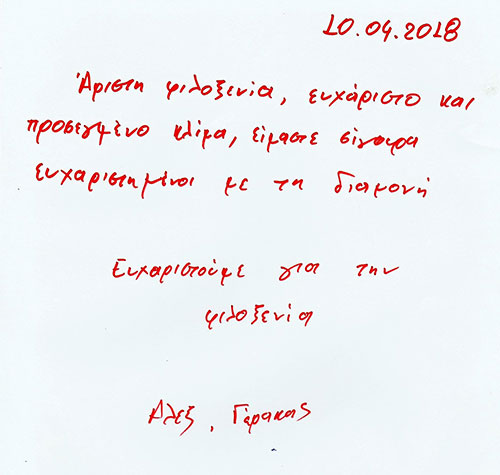 10.04.2018
Άριστη φιλοξενία, ευχάριστο και
προσεγμένο κλίμα, είμαστε σίγουρα
ευχαριστημένοι με τη διαμονή
Ευχαριστούμε για την
φιλοξενία
Αλεξ, Γέρακας